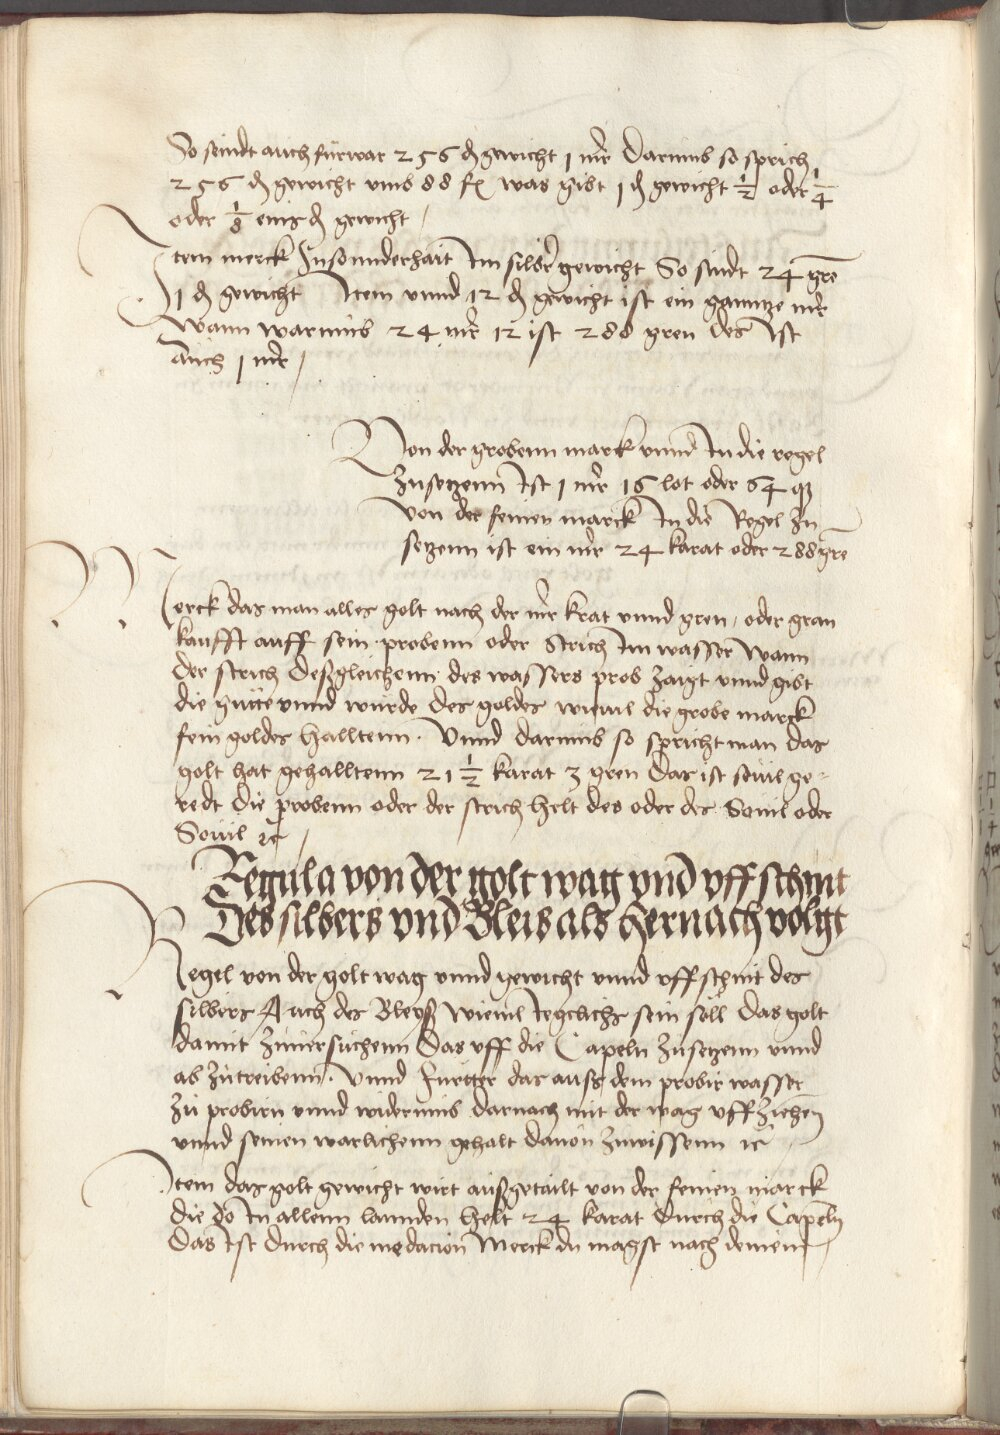 So seindt auch fürwar 256 ₰ gewicht 1 mr̃ Darumb so sprich
256 ₰ gewicht vmb 88 fl was gibt 1 ₰ gewicht 1/2 oder 1/4
oder 1/8 eins ₰ gewicht
Item merck Insonnderhait Im silber gewicht So sindt 24 gre
1 ₰ gewicht Item vnnd 12 ₰ gewicht ist ein ganntze mr̃
Wann warumb 24 mr̃ 12 ist 288 gren des Ist
auch 1 mr̃
Von der grobenn marck vnnd In die regel
Zusetzenn Ist 1 mr̃ 16 lot oder 64
Von der feinen marck In die Regel zu
setzenn ist ein mr̃ 24 karat oder 288 gre
Merck das man alles golt nach der mr̃ krat vnnd gren, oder gran
kaufft auff sein probenn oder Strich Im wasser Wann
der strich deßgleichenn des wassers prob zaigt vnnd gibt
die gütte vnnd würde des goldes wieuil die grobe marck
fein goldes halltenn. Vnnd darumb so spricht man das
golt hat gehalltenn 21 1/2 karat 3 gren Das ist souil ge-
redt die probenn oder der strich helt des oder des Souil oder
Souil ⁊c
Regula von der golt wag vnd vffschnit
Des silbers vnd Bleis als hernach volgt
Regel von der golt wag vnnd gewicht vnnd vffschnit des
silbers Auch des Bleyß wieuil Iegclichs sein soll das golt
damit zuuersuchenn Das vff die Capeln zusetzenn vnnd
ab zutreibenn. Vnnd furtter das auß dem probir wasser
zu probirn vnnd widerumb darnach mit der wag vffziehen
vnnd seinen warlichenn gehalt dauon zuwissenn ⁊c
Item das golt gewicht wirt außgetailt von der feinen marck
die do In allenn lannden helt 24 karat durch die Capeln
Das Ist durch die medacion Merck du magst nach deinem